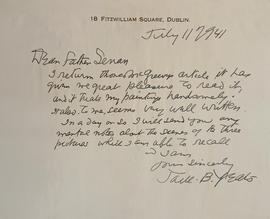 18 FITZWILLIAM SQUARE, DUBLIN.
July 11 1941
Dear Father Senan
I return Thomas McGreevy's article it has
given me great pleasure to read it,
and it treats my paintings handsomely.
it also, to me, seems very well written.
In a day or so I will send you any
mental notes about the scenes of the three
pictures which I am able to recall
I am
Yours sincerely
Jack B. Yeats